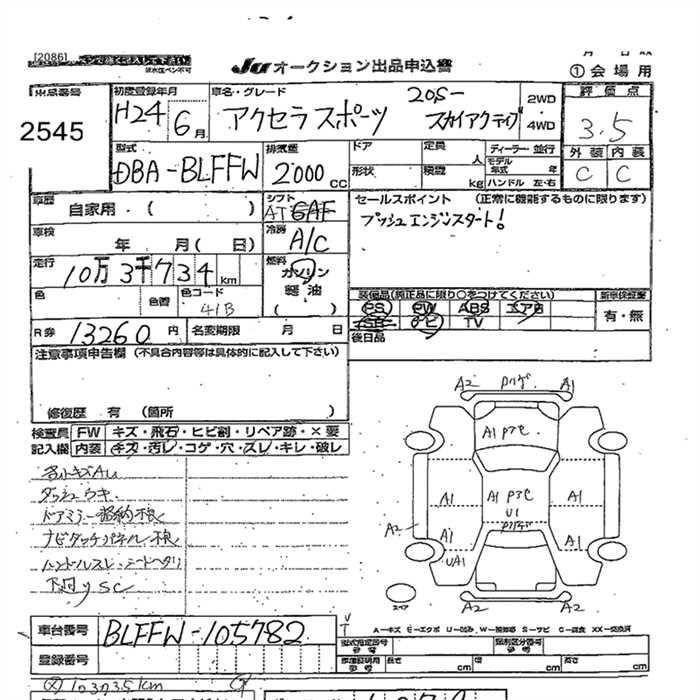 [2086]
ペンで強く記入して下さい
感水性ペン不可
JU オークション出品申込書
月 日 xx
①会場用
出品番号
2545
初度登録年月
H24 6月
車名・グレード
アクセラスポーツ
20S-
スカイアクティブ
2WD
4WD
評価点
3.5
型式
DBA-BLFFW
排気量
2000 CC
ドア
形状
定員
人
積載
kg
ディーラー・並行
モデル年式 年
ハンドル 左・右
外装 内装
C C
車歴
自家用・( )
シフト
AT 6AF
セールスポイント (正常に機能するものに限ります)
プッシュエンジンスタート!
車検
年 月( 日)
冷房
A/C
走行
10万3千734 km
燃料
ガソリン
軽油
( )
色
色替
色コード
41B
装備品(純正品に限り○をつけてください)
PS PW ABS エアB
ナビ TV
新車保証書
有・無
後日品
R券 13260円
名変期限 月 日
注意事項申告欄 (不具合内容等は具体的に記入して下さい)
修復歴 有 (箇所 )
検査員 FW キズ・飛石・ヒビ割・リペア跡・×要
記入欄 内装 キズ・汚レ・コゲ・穴・スレ・キレ・破レ
各小キズAU
ダッシュウキ
ドアミラー格納不良
ナビタッチパネル不良
ハンドルスレ シートヘタリ
下回りSC
A2 A1
A1 P
A1 A1 P A1
U1
A2 A1 A1
UA1
A2 A2
スペア
A-キズ E-エクボ U-凹み W-補修跡 S-サビ C-腐食 XX-交換済
車台番号 BLFFW-105782
登録番号
型式指定番号 参考
類別区分番号 参考
車庫証明用 参考
長さ cm
幅 cm
高さ cm